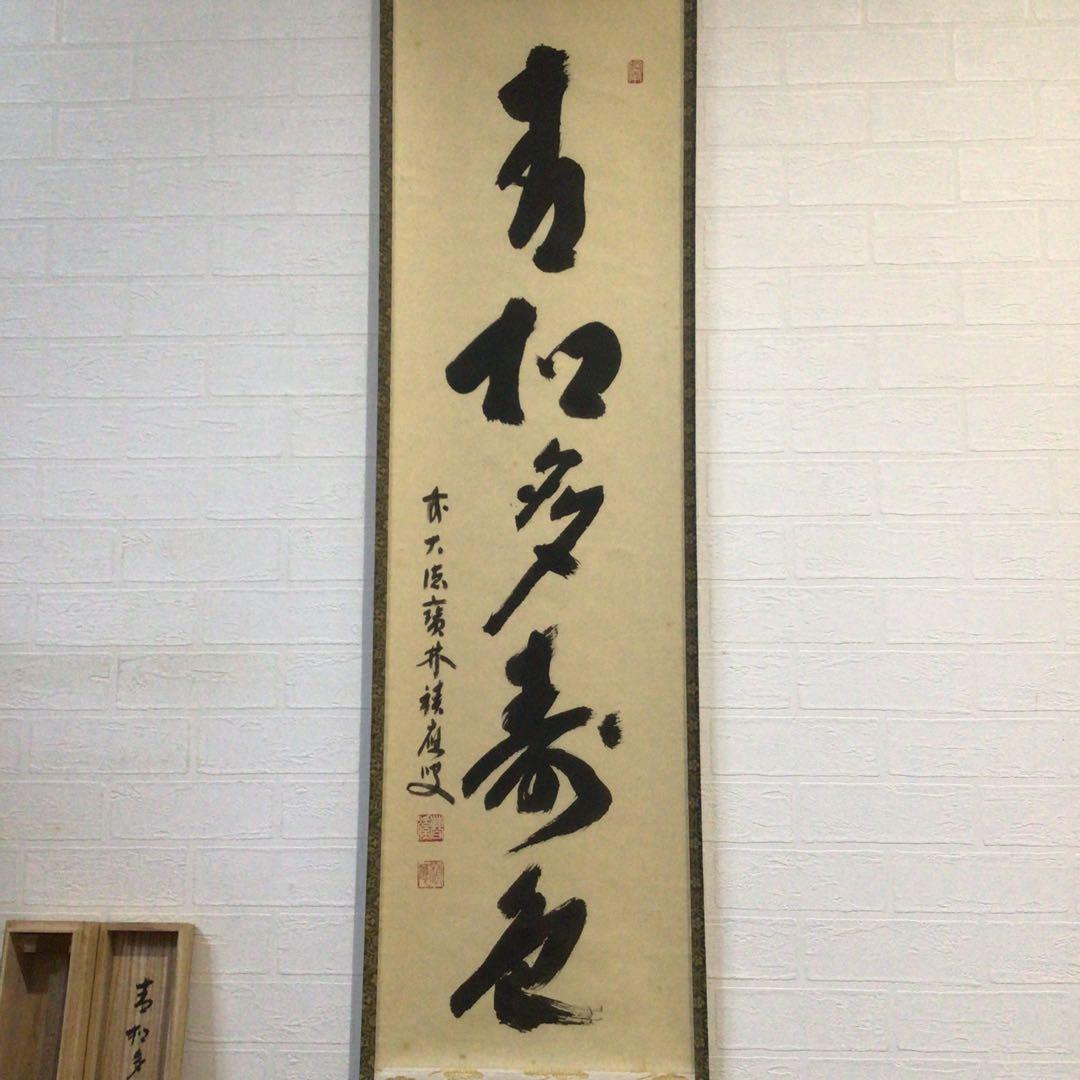 青松多壽色
前大德寶林禎應叟
青松多